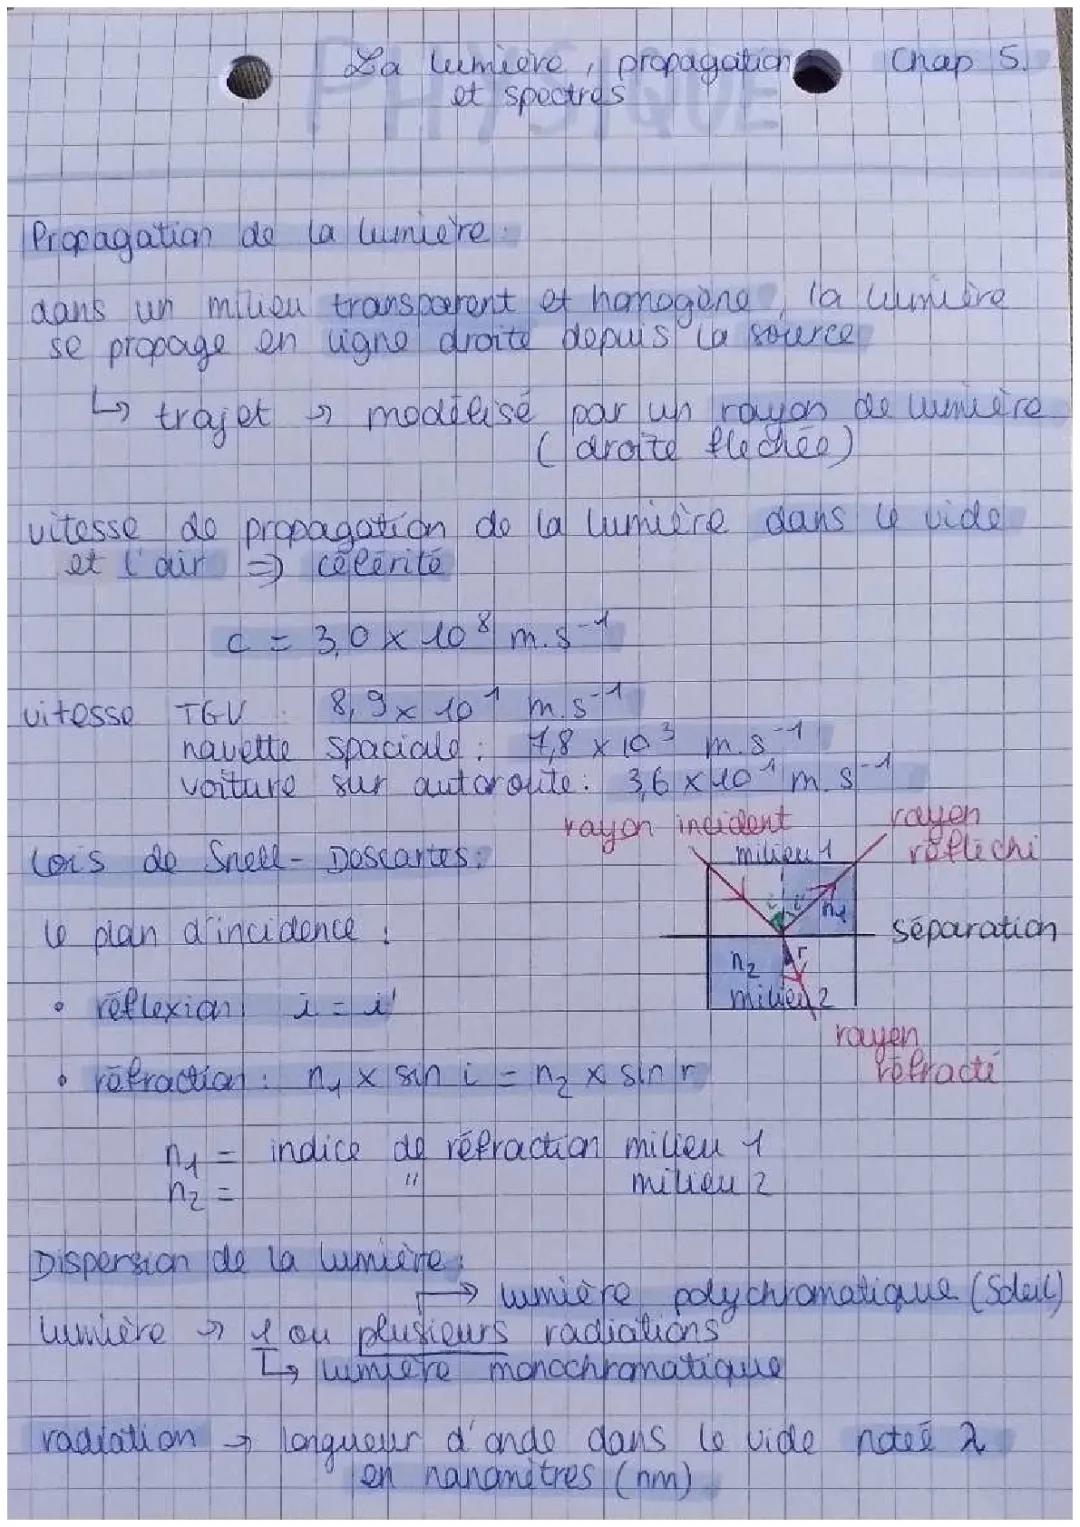 PHYSIQUE
La lumière, propagation Chap 5.
et spectres
Propagation de la lumière :
dans un milieu transparent et homogène, la lumière
se propage en ligne droite depuis la source
↳ trajet → modélisé par un rayon de lumière
(droite fléchée)
vitesse de propagation de la lumière dans le vide
et l'air => célérité
c = 3,0 × 10⁸ m.s⁻¹
vitesse TGV : 8,9 × 10¹ m.s⁻¹
navette spaciale : 7,8 × 10³ m.s⁻¹
voiture sur autoroute : 3,6 × 10¹ m.s⁻¹
rayon incident rayon
Lois de Snell-Descartes : milieu 1 réfléchi
i i' n₁
le plan d'incidence : séparation
n₂ r
• réflexion i = i' milieu 2
rayon
• réfraction : n₁ × sin i = n₂ × sin r réfracté
n₁ = indice de réfraction milieu 1
n₂ = " milieu 2
Dispersion de la lumière :
→ lumière polychromatique (Soleil)
lumière → 1 ou plusieurs radiations
↳ lumière monochromatique
radiation → longueur d'onde dans le vide notée λ
en nanomètres (nm)